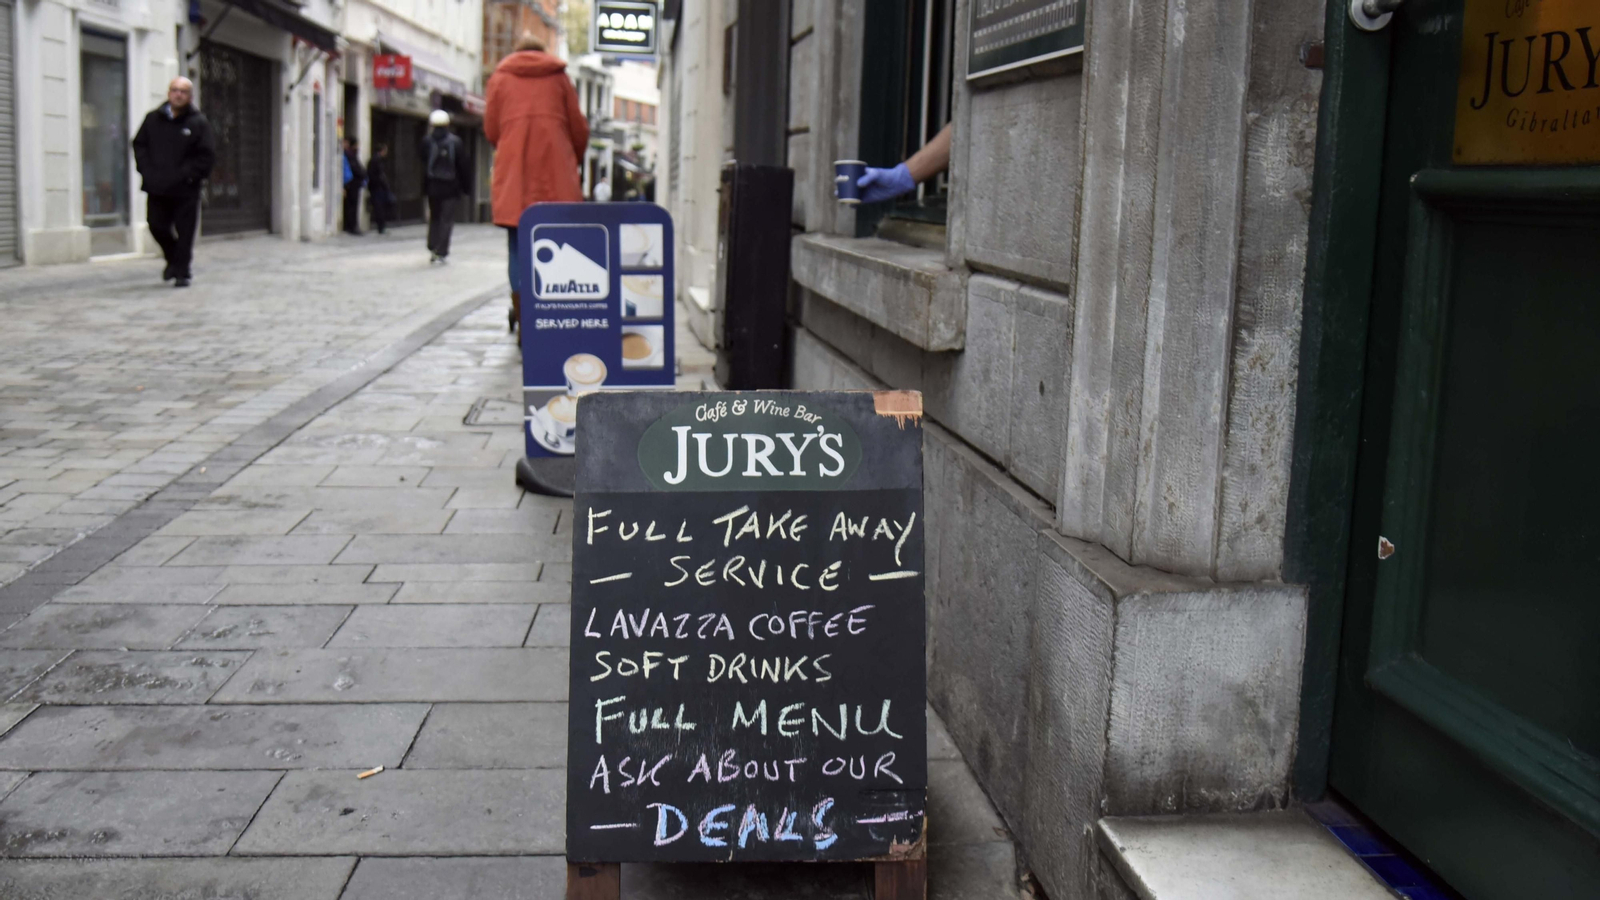 ADAM
Café
JURY
Gibralta
LAVAZZA
ITALY'S FAVOURITE COFFEE
SERVED HERE
Café & Wine Bar
JURY'S
FULL TAKE AWAY
— SERVICE —
LAVAZZA COFFEE
SOFT DRINKS
FULL MENU
ASK ABOUT OUR
— DEALS —